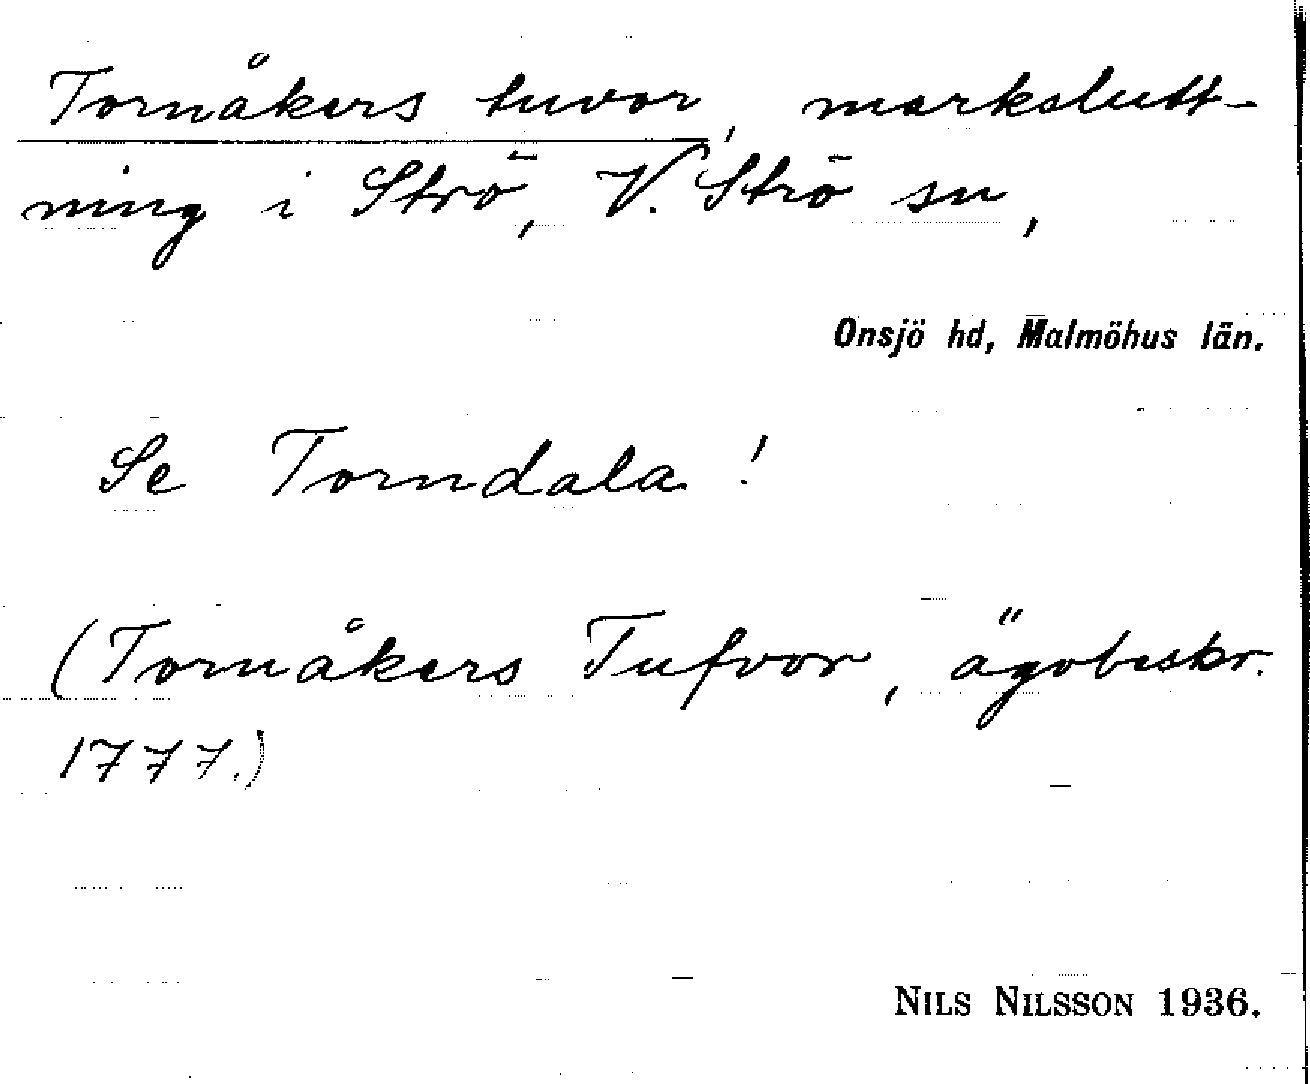 Tornåkers tuvor, markslutt-
ning i Strö, V. Strö sn,
Onsjö hd, Malmöhus län.
Se Torndala!
(Tornåkers Tufvor, ägobeskr.
1777.)
NILS NILSSON 1936.